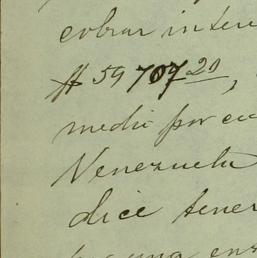 cobrar inter
$ 59707 20,
medio por cu
Venezuela
dice tener